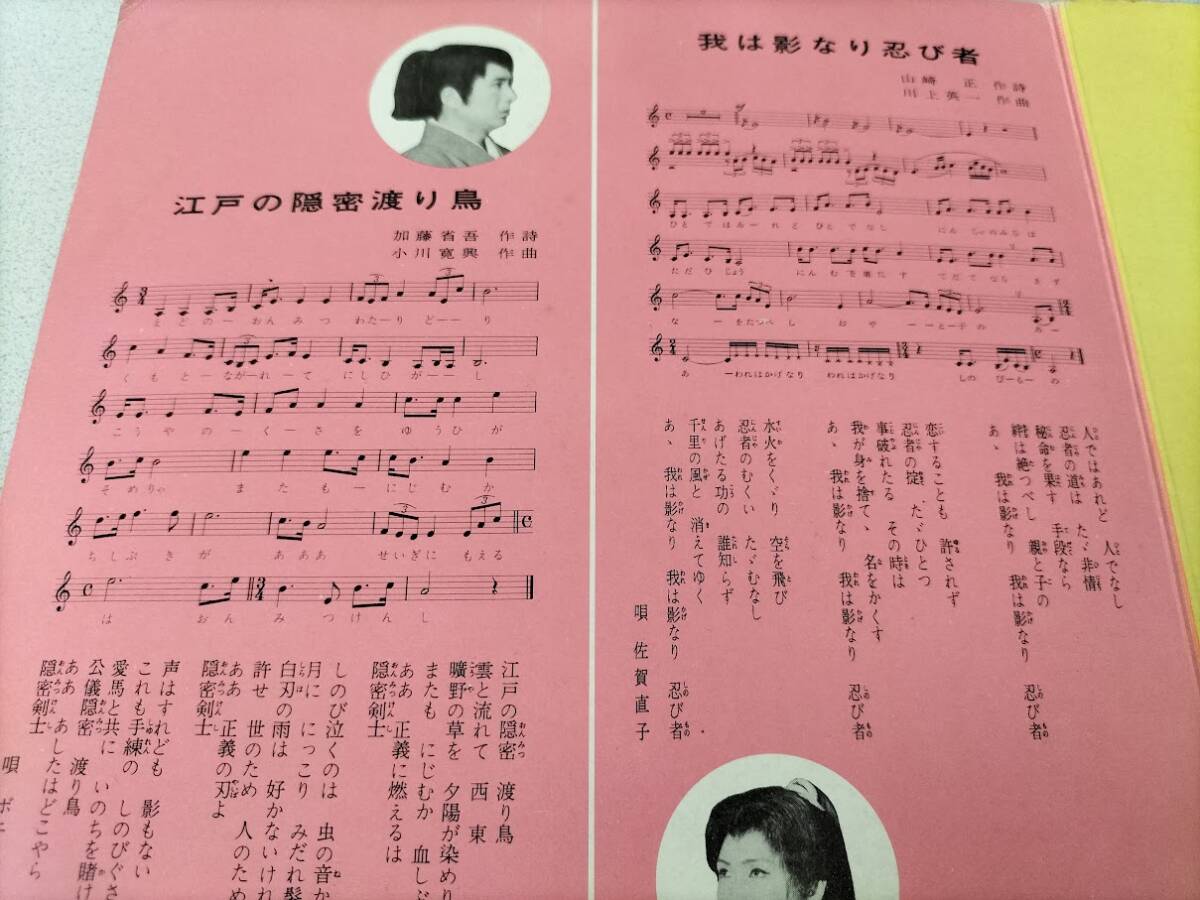 我は影なり忍び者
山崎 正 作詩
川上英一 作曲
ひとではあーれどひとでなし にんじゃのみちは
ただひじょう にんむを果たす てだてなら きず
なーをたつべし おやーーと子の あー
あーわれはかげなり われはかげなり しのびーもーの
人ではあれど 人でなし
忍者の道は たゞ非情
秘命を果す 手段なら
絆は絶つべし 親と子の
あゝ 我は影なり 我は影なり 忍び者
恋することも 許されず
忍者の掟 たゞひとつ
事破れたる その時は
我が身を捨てゝ 名をかくす
あゝ 我は影なり 我は影なり 忍び者
水火をくゞり 空を飛び
忍者のむくい たゞむなし
あげたる功の 誰知らず
千里の風と 消えてゆく
あゝ 我は影なり 我は影なり 忍び者
唄 佐賀直子
江戸の隠密渡り鳥
加藤省吾 作詩
小川寛興 作曲
えどのーおんみつ わたーりどーーり
くもとーながーれーて にしひがーーし
こうやのーくーさを ゆうひが
そめりゃ またもーにじむか
ちしぶきが あああ せいぎに もえる
は おんみつけんし
江戸の隠密 渡り鳥
雲と流れて 西東
曠野の草を 夕陽が染めり
またも にじむか 血しぶ
ああ 正義に燃えるは
隠密剣士
しのび泣くのは 虫の音か
月に にっこり みだれ髪
白刃の雨は 好かないけれ
許せ 世のため 人のため
ああ 正義の刃よ
隠密剣士
声はすれども 影もない
これも手練の しのびぐさ
愛馬と共に いのちを賭け
公儀隠密 渡り鳥
ああ あしたはどこやら
隠密剣士
唄 ボニ